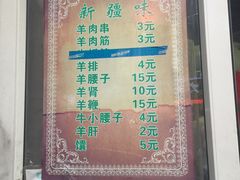 新疆味
羊肉串 3元
羊肉筋 3元
羊排 4元
羊腰子 15元
羊肾 10元
羊鞭 15元
牛小腰子 4元
羊肝 2元
馕 5元